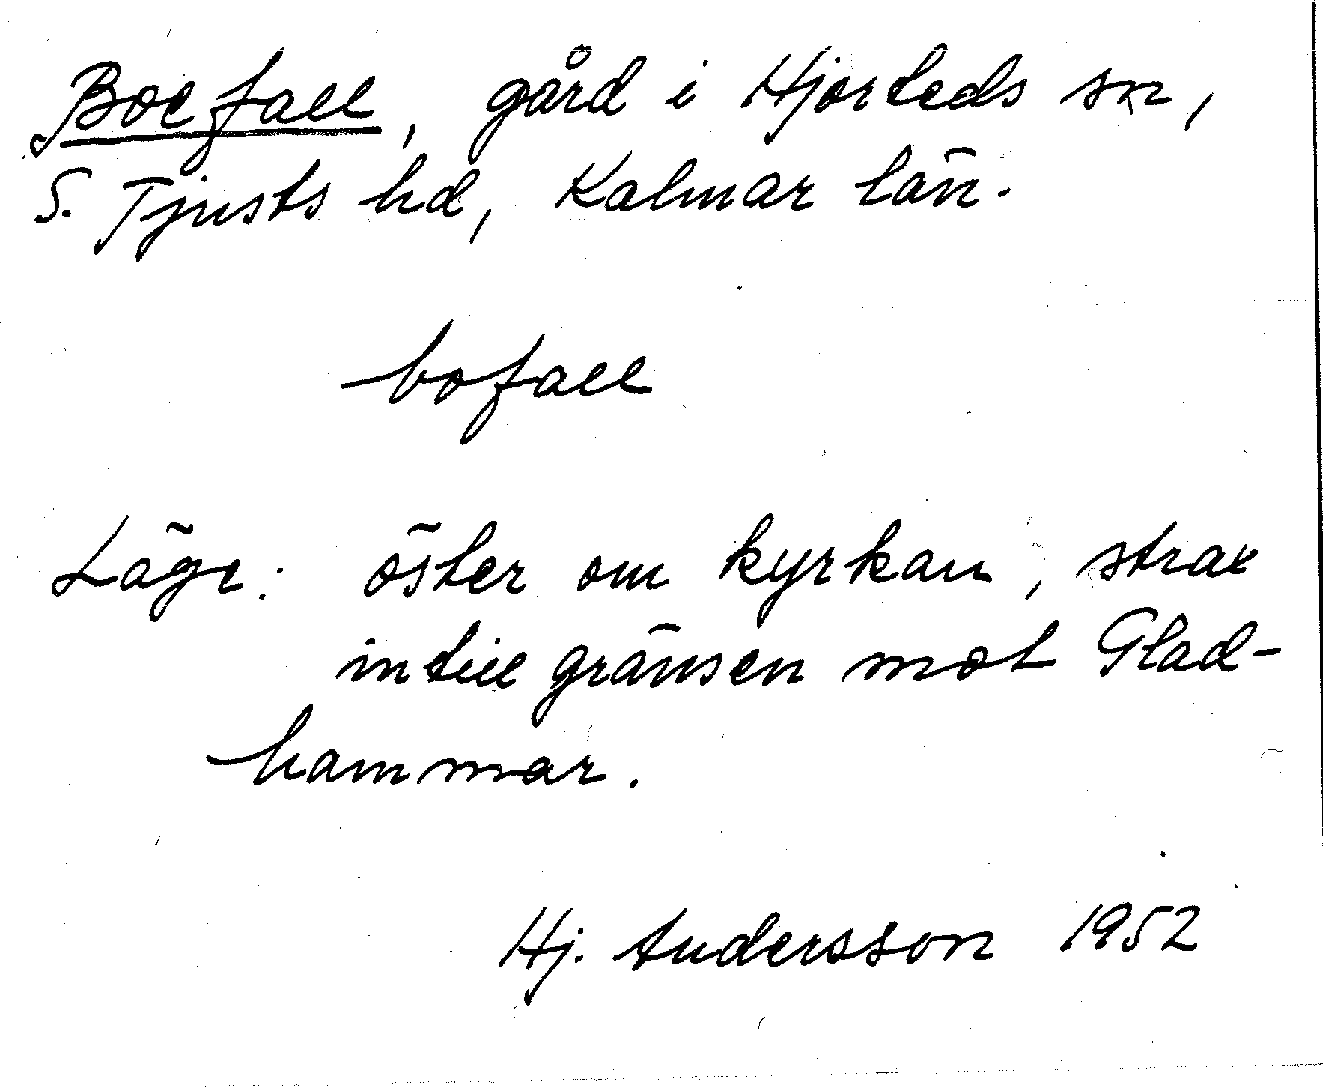 Boefall, gård i Hjorteds sn,
S. Tjusts hd, Kalmar län.
bofall
Läge: öster om kyrkan, strax
intill gränsen mot Glad-
hammar.
Hj. Andersson 1952